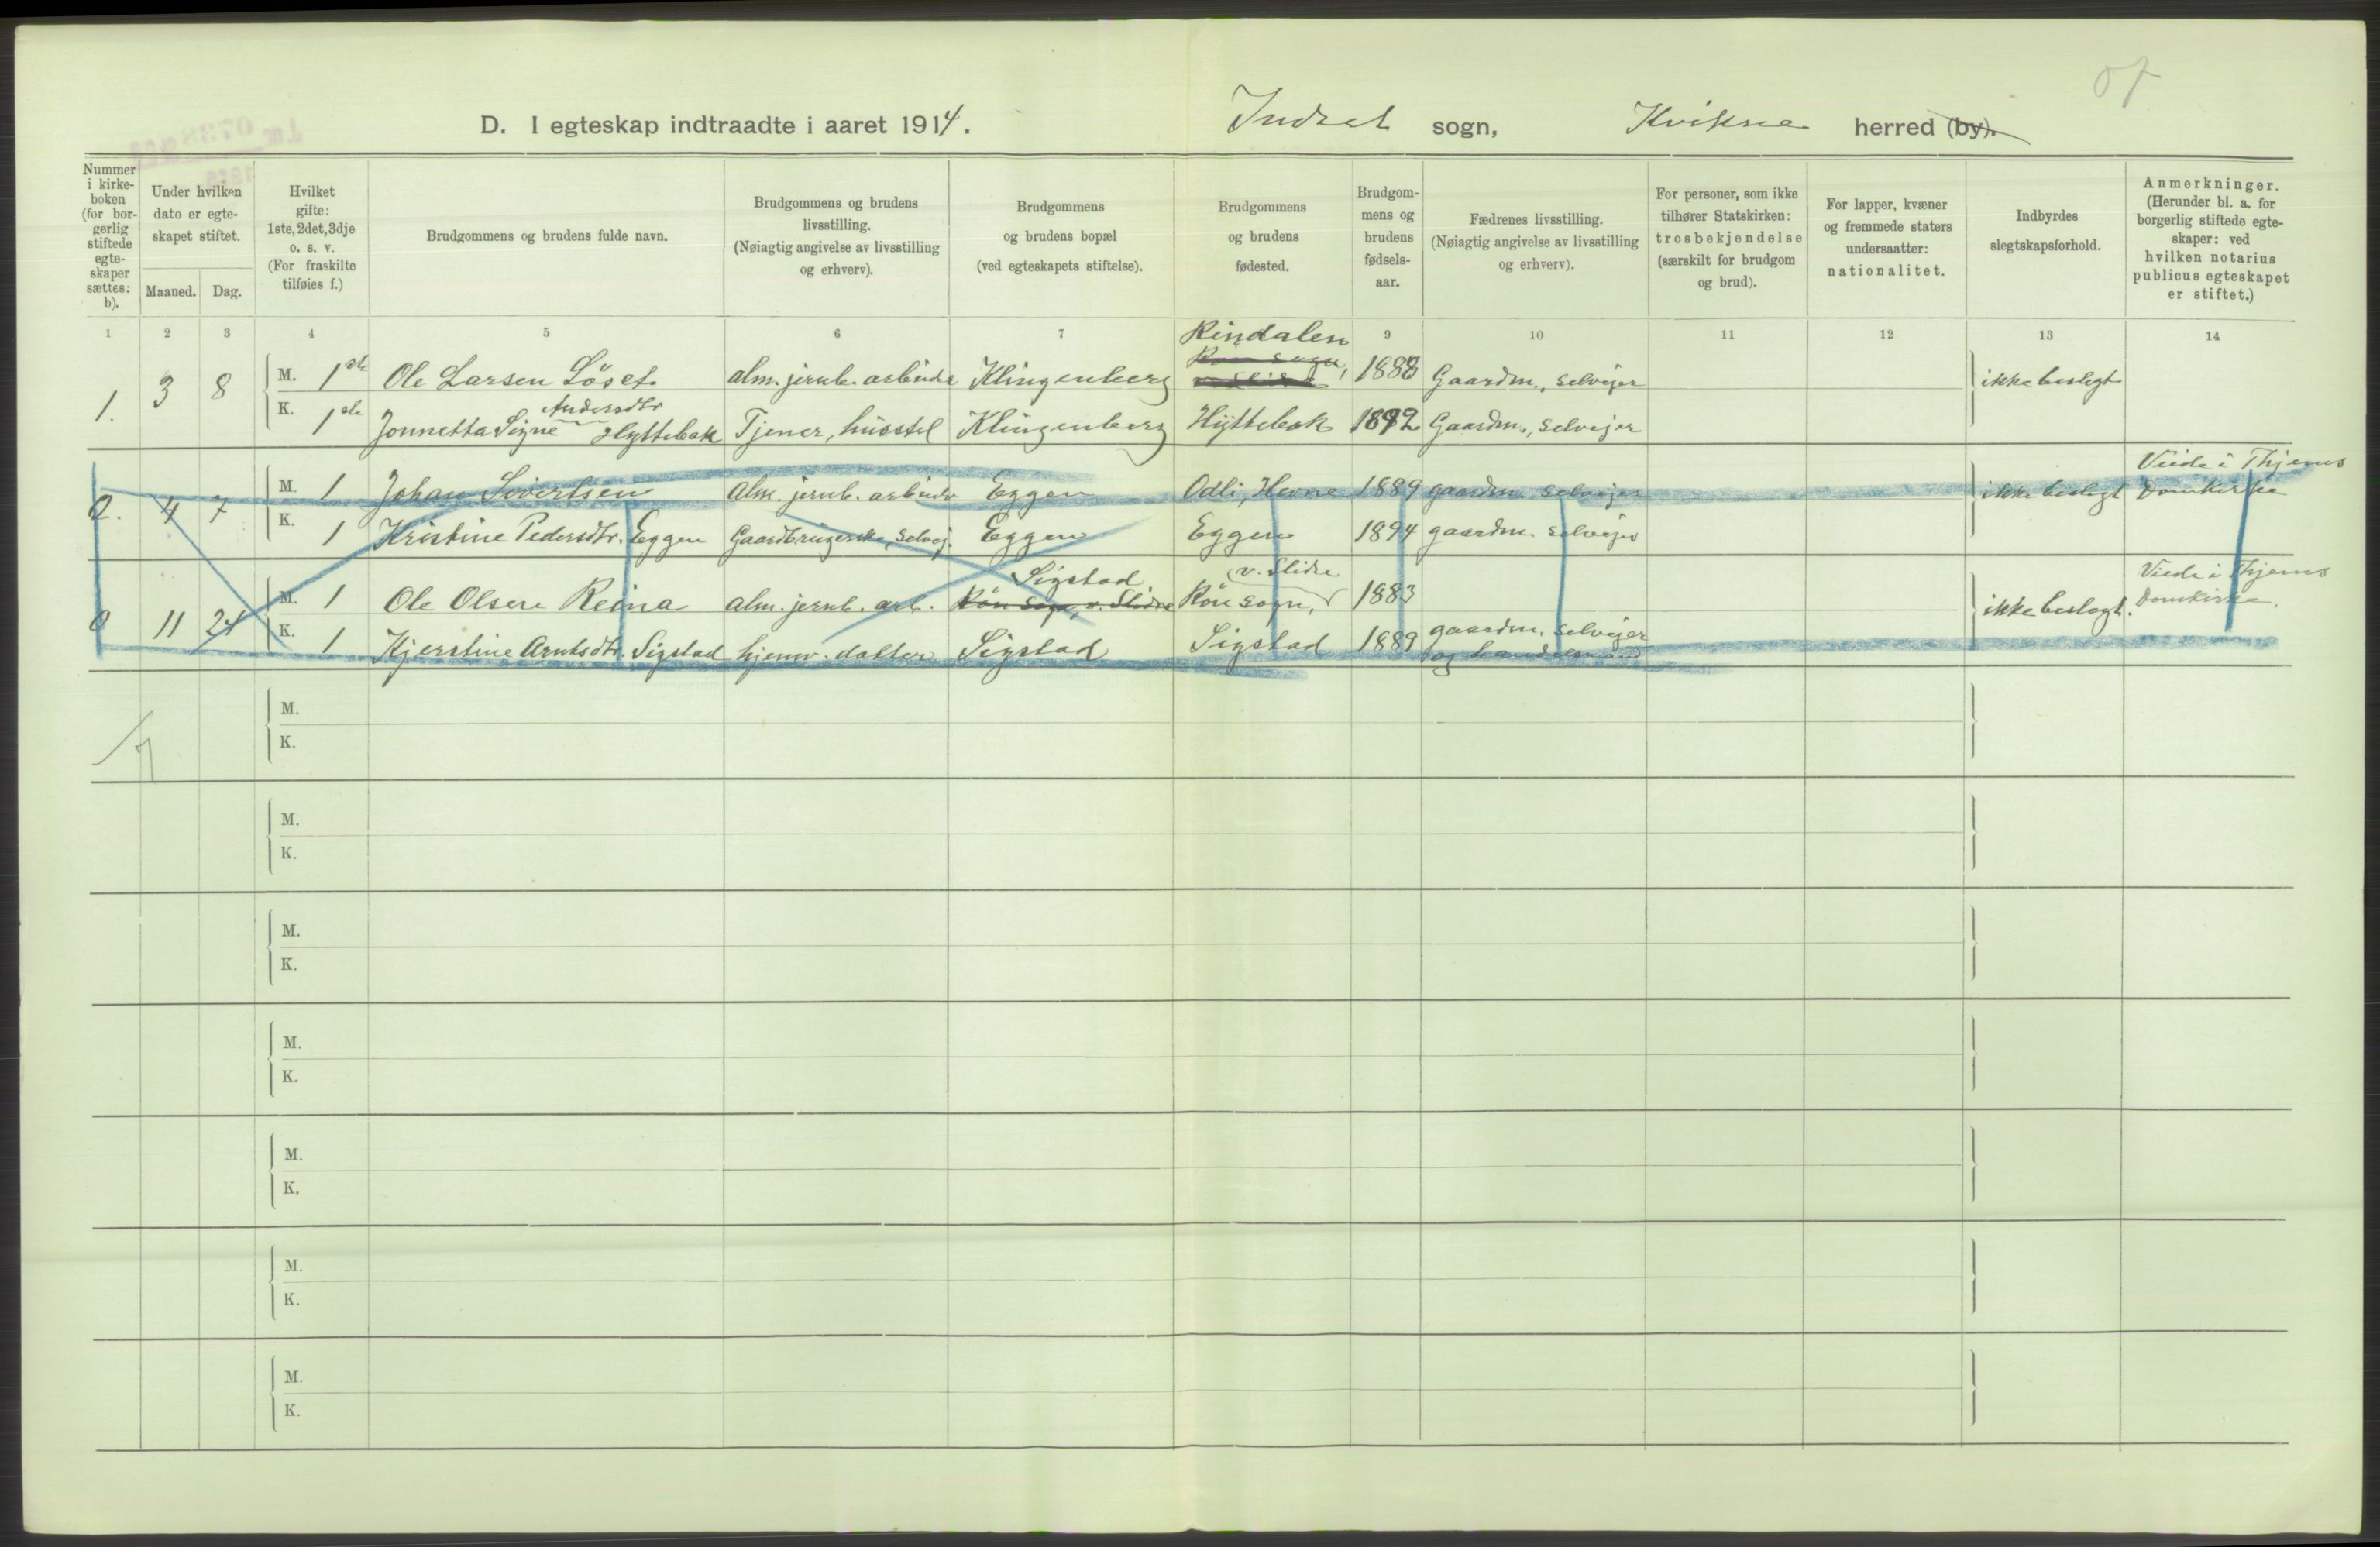 D. I egteskap indtraadte i aaret 1914. Indset sogn, Kvikne herred (by).
Nummer i kirke-boken (for bor-gerlig stiftede egte-skaper sættes: b).
Under hvilken dato er egte-skapet stiftet.
Maaned. Dag.
Hvilket gifte: 1ste, 2det, 3dje o. s. v. (For fraskilte tilføies f.)
Brudgommens og brudens fulde navn.
Brudgommens og brudens livsstilling. (Nøiagtig angivelse av livsstilling og erhverv).
Brudgommens og brudens bopæl (ved egteskapets stiftelse).
Brudgommens og brudens fødested.
Brudgom-mens og brudens fødsels-aar.
Fædrenes livsstilling. (Nøiagtig angivelse av livsstilling og erhverv).
For personer, som ikke tilhører Statskirken: trosbekjendelse (særskilt for brudgom og brud).
For lapper, kvæner og fremmede staters undersaatter: nationalitet.
Indbyrdes slegtskapsforhold.
Anmerkninger. (Herunder bl. a. for borgerlig stiftede egte-skaper: ved hvilken notarius publicus egteskapet er stiftet.)
1 2 3 4 5 6 7 9 10 11 12 13 14
Rindalen
1. 3 8 M. 1ste Ole Larsen Löset alm. jernb. arbeider Klingenberg 1888 Gaardm., selvejer ikke beslegt
Andersdtr
K. 1ste Jonnetta Signe Hyttebak Tjener, husstel Klingenberg Hyttebak 1892 Gaardm., selvejer
Viede i Thjems
2. 4 7 M. 1 Johan Sivertsen Alm. jernb. arbeider Eggen Odli, Hevne 1889 gaardm. selvejer ikke beslegt Domkirke
K. 1 Kristine Pedersdtr. Eggen Gaardbrugerske, selvej. Eggen Eggen 1894 gaardm. selvejer
Sigstad v. Slidre Viede i Thjems
11 24 M. 1 Ole Olsen Reina alm. jernb. arb. Rön sogn, v. Slidre Rön sogn, 1883 ikke beslegt. Domkirke.
K. 1 Kjerstine Arntsdtr. Sigstad hjemv. datter Sigstad Sigstad 1889 gaardm. selvejer
og handelsmand
M.
K.
M.
K.
M.
K.
M.
K.
M.
K.
M.
K.
M.
K.